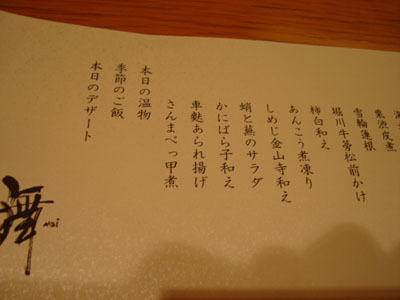 栗渋皮煮
雪輪蓮根
堀川牛蒡松前かけ
柿白和え
あんこう煮凍り
しめじ金山寺和え
蛸と蕪のサラダ
かにばら子和え
車麩あられ揚げ
さんまべっ甲煮
本日の温物
季節のご飯
本日のデザート
舞
mai